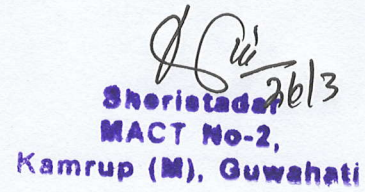 26/3
Sheristadar
MACT No-2,
Kamrup (M), Guwahati